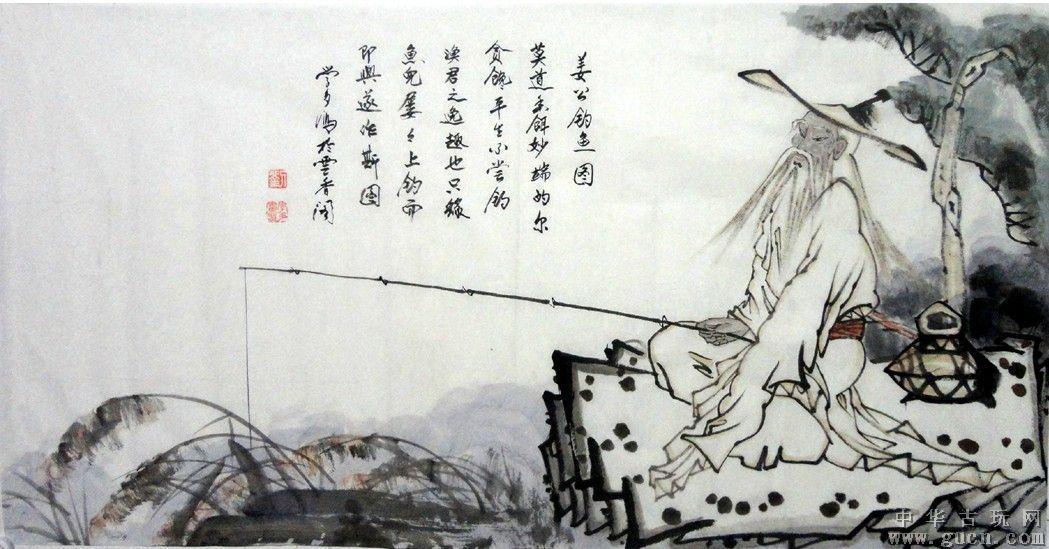 姜公钓鱼图
莫道香饵妙端的尔
贪馋平生不尝钓
渔君之逸趣也只缘
鱼儿屡々上钓而
即兴遂作斯图
鸿于云香阁
中华古玩网
www.gucn.com